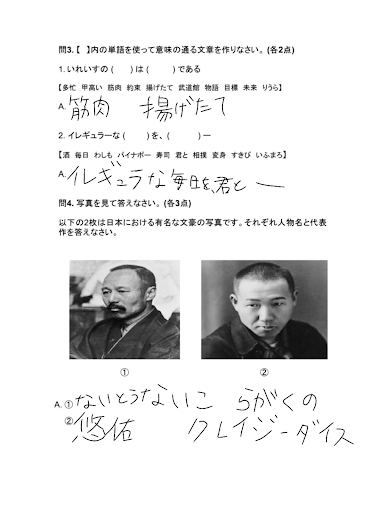 問3. 【 】内の単語を使って意味の通る文章を作りなさい。(各2点)
1. いれいすの (　　) は (　　　) である
【多忙 甲高い 筋肉 約束 揚げたて 武道館 物語 目標 未来 りうら】
A. 筋肉 揚げたて
2. イレギュラーな (　　　) を、(　　　　) ー
【酒 毎日 わしも パイナポー 寿司 君と 相撲 変身 すきぴ いふまろ】
A. イレギュラな毎日を、君と ー
問4. 写真を見て答えなさい。(各3点)
以下の2枚は日本における有名な文豪の写真です。それぞれ人物名と代表
作を答えなさい。
① ②
A. ① ないとうないこ らがくの
② 悠佑 クレイジーダイス